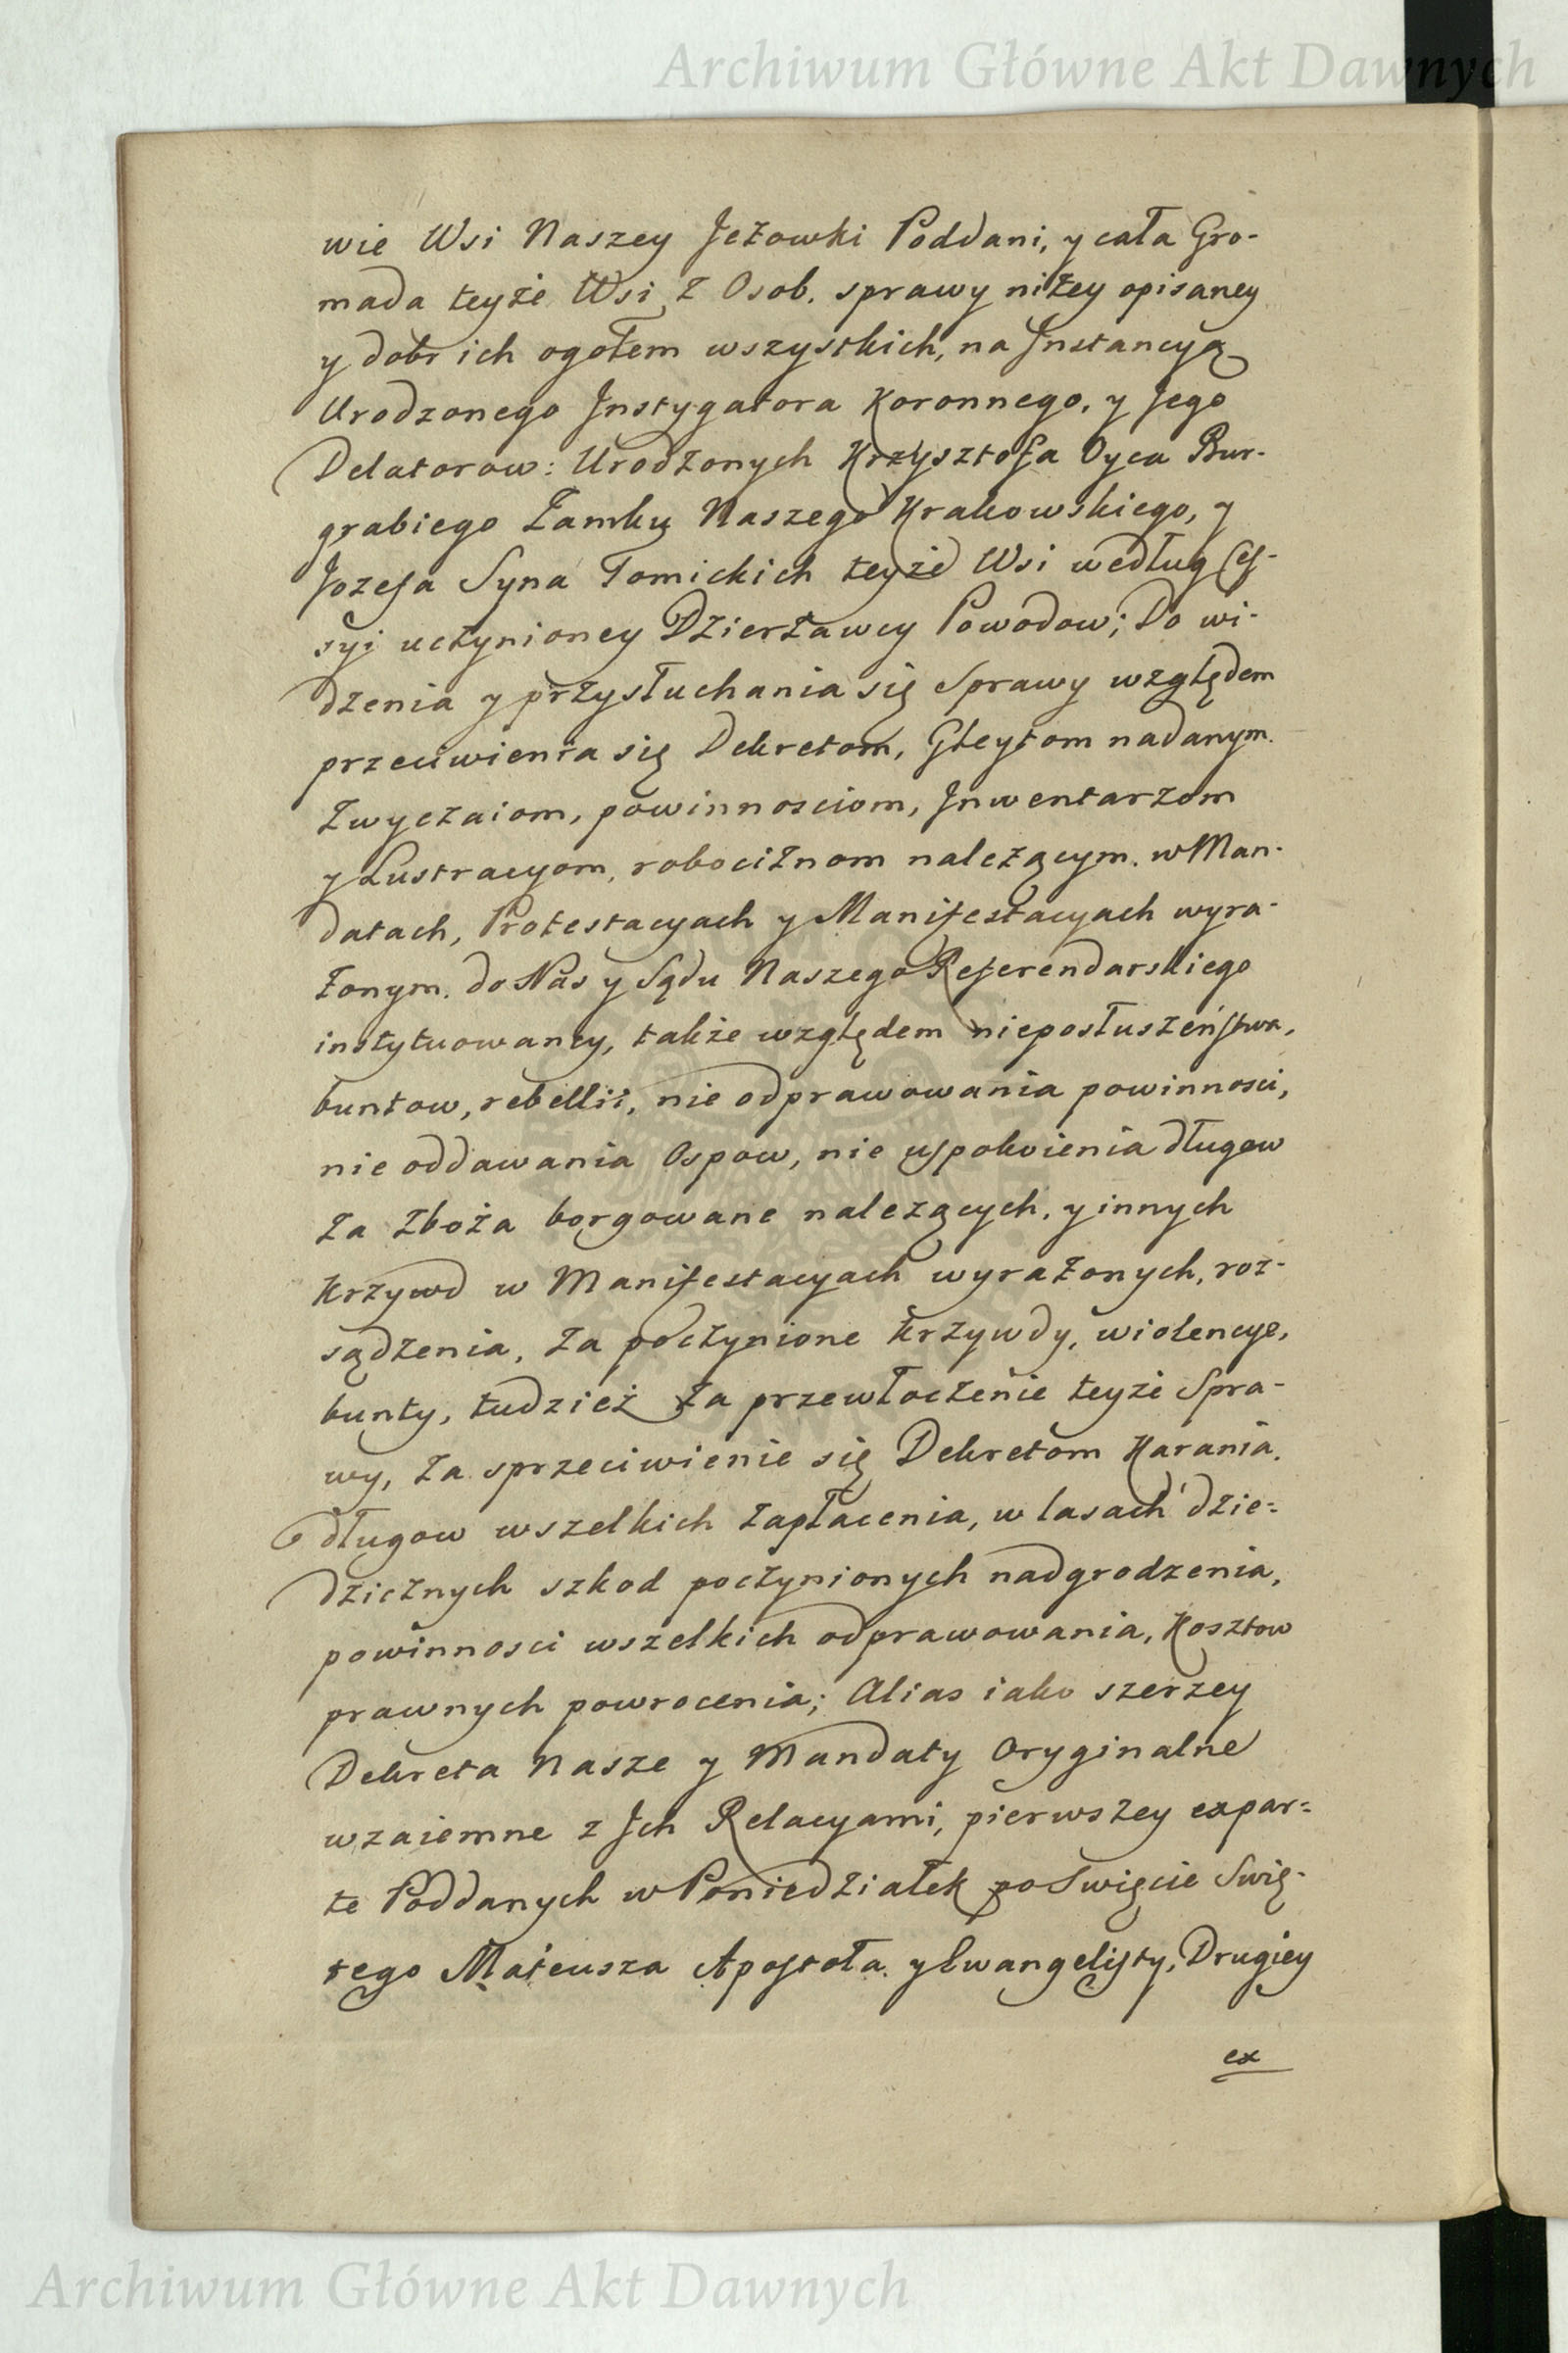 Archiwum Główne Akt Dawnych
wie Wsi Naszey Jeżowki Poddani, y cała Gro-
mada teyże Wsi z Osob. sprawy niżey opisaney
y dobr ich ogołem wszystkich, na Jnstancyą
Urodzonego Jnstygatora Koronnego, y Jego
Delatorow: Urodzonych Krzysztofa Oyca Bur-
grabiego Zamku Naszego Krakowskiego, y
Jozefa Syna Tomickich teyże Wsi według Ces-
syi uczynioney Dzierżawcy Powodow; Do wi-
dzenia y przysłuchania się Sprawy względem
przeciwienia się Dekretom, Gleytom nadanym.
Zwyczaiom, powinnosciom, Jnwentarzom
y Lustracyom, robociznom należącym. w Man-
datach, Protestacyach y Manifestacyach wyra-
żonym. do Nas y Sądu Naszego Referendarskiego
instytuowaney, także względem nieposłuszeństwa,
buntow, rebellii, nie odprawowania powinnosci,
nie oddawania Ospow, nie uspokoienia długow
za zboża borgowane nalezących, y innych
Krzywd w Manifestacyach wyrażonych, roz-
sądzenia, za poczynione Krzywdy, wiolencye,
bunty, tudzież za przewłoczenie teyże Spra-
wy, za sprzeciwienie się Dekretom Karania.
długow wszelkich zapłacenia, w lasach dzie=
dzicznych szkod poczynionych nadgrodzenia,
powinnosci wszelkich odprawowania, Kosztow
prawnych powrocenia; Alias iako szerzey
Dekreta Nasze y Mandaty Oryginalne
wzaiemne z Jch Relacyami, pierwszey expar=
te Poddanych w Poniedziałek po Swięcie Swię-
tego Mateusza Apostoła. y Ewangelisty, Drugiey
ex
Archiwum Główne Akt Dawnych